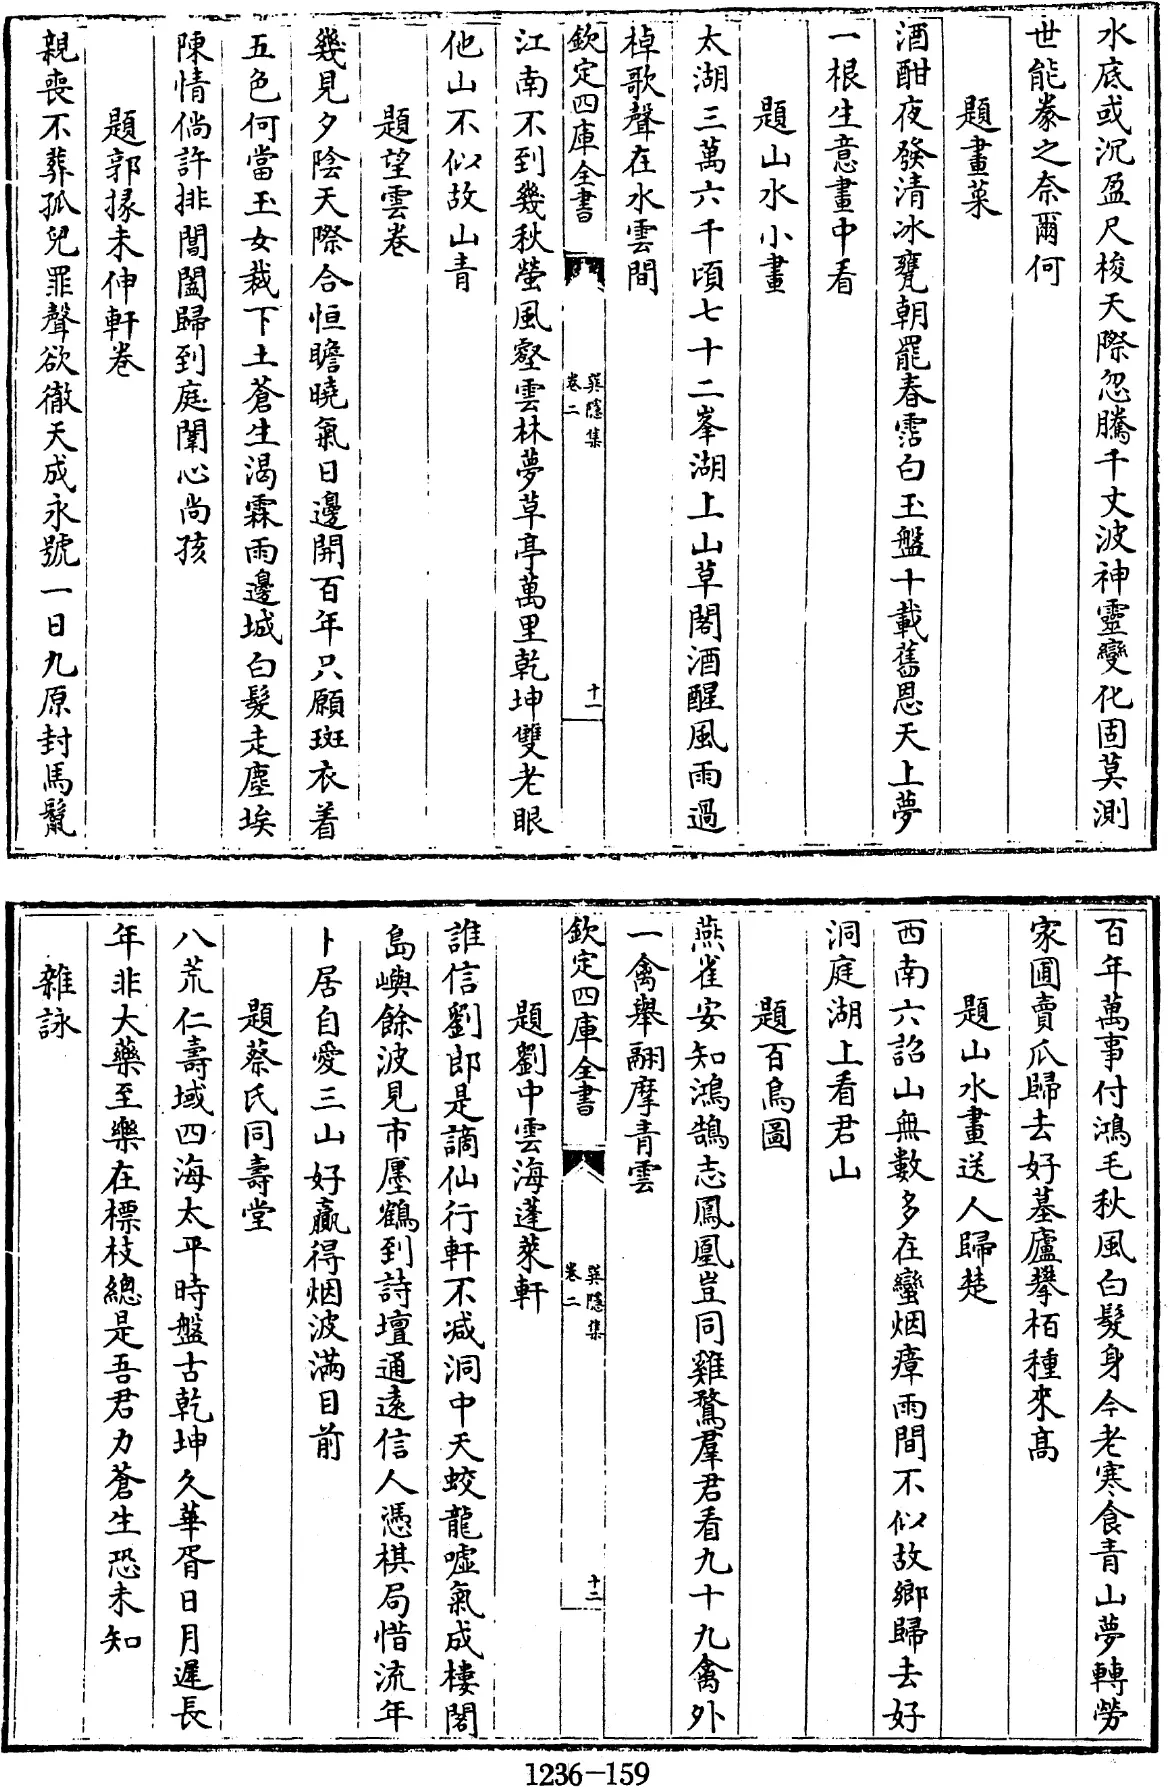 水底或沉盈尺梭天際忽騰千丈波神靈變化固莫測
世能豢之奈爾何
題畫菜
酒酣夜發清冰甕朝罷春霑白玉盤十載舊恩天上夢
一根生意畫中看
題山水小畫
太湖三萬六千頃七十二峯湖上山草閣酒醒風雨過
棹歌聲在水雲間
欽定四庫全書
巽隱集
卷二
十一
江南不到幾秋螢風壑雲林夢草亭萬里乾坤雙老眼
他山不似故山青
題望雲卷
幾見夕陰天際合恒瞻曉氣日邊開百年只願斑衣着
五色何當玉女裁下土蒼生渴霖雨邊城白髮走塵埃
陳情倘許排閶闔歸到庭闈心尚孩
題郭掾未伸軒卷
親喪不葬孤兒罪聲欲徹天成永號一日九原封馬鬣
百年萬事付鴻毛秋風白髮身今老寒食青山夢轉勞
家圃賣瓜歸去好墓廬攀栢種來高
題山水畫送人歸楚
西南六詔山無數多在蠻烟瘴雨間不似故鄉歸去好
洞庭湖上看君山
題百鳥圖
燕雀安知鴻鵠志鳳凰豈同雞鶩羣君看九十九禽外
一禽舉翮摩青雲
欽定四庫全書
巽隱集
卷二
十二
題劉中雲海蓬萊軒
誰信劉郎是謫仙行軒不减洞中天蛟龍噓氣成樓閣
島嶼餘波見市廛鶴到詩壇通遠信人憑棋局惜流年
卜居自愛三山好贏得烟波滿目前
題蔡氏同壽堂
八荒仁壽域四海太平時盤古乾坤久華胥日月遲長
年非大藥至樂在標枝總是吾君力蒼生恐未知
雜詠
1236-159